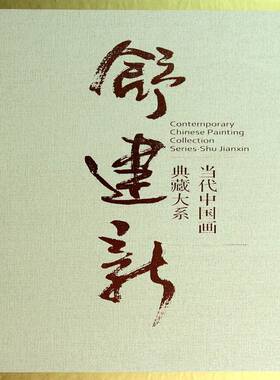 舒建新
Contemporary
Chinese Painting
Collection
Series·Shu Jianxin
当代中国画
典藏大系